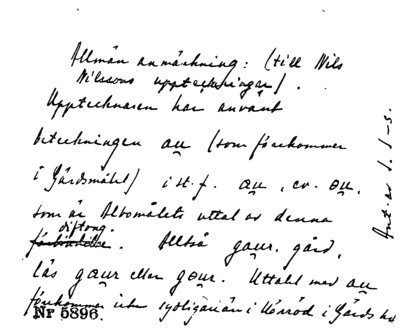 Allmän anmärkning: (till Nils
Nilssons uppteckningar).
Upptecknaren har använt
beteckningen au (som förekommer
i Gärdsmålet) i st. f. au, ev. ou,
som är Albomålets uttal av denna
diftong.
förbindelse. Alltså gaur, gård,
läs gaur eller gour. Uttalet med au
förekommer icke sydligare än i Hörröd i Gärds hd
Nr 5896.
Ant. av